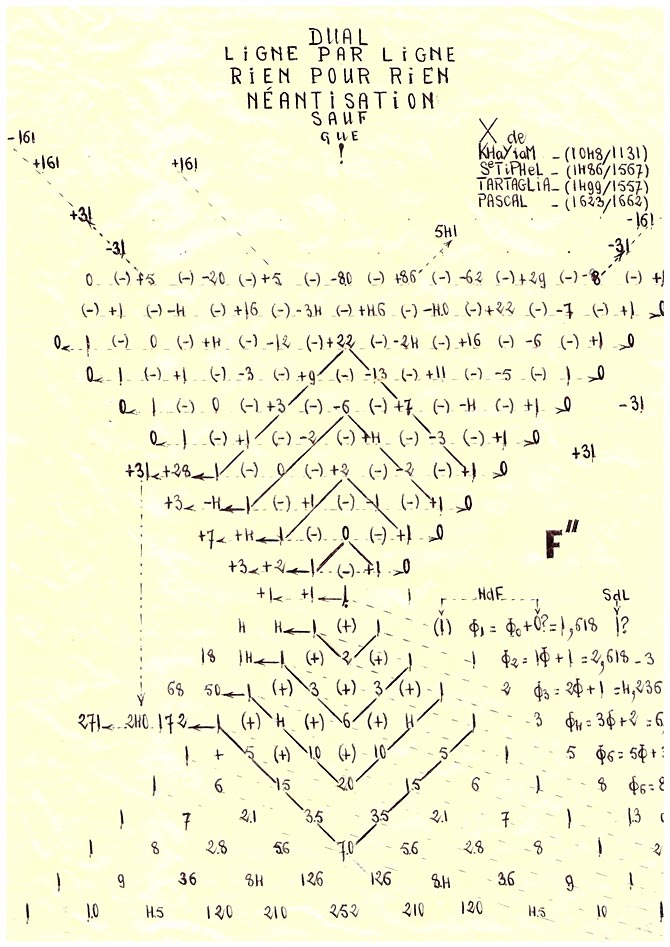 DUAL
LiGNE PAR LiGNE
RiEN POUR RiEN
NÉANTiSATiON
SAUF
QUE
!
X de
KHaYiaM - (10H8/1131)
SeTiPHeL - (1H86/1567)
TARTAGLiA - (1H99/1557)
PASCAL - (1623/1662)
-161
+161
+161
-161
+31
-31
5H1
-31
0 (-) +5 (-) -20 (-) +5 (-) -80 (-) +86 (-) -62 (-) +29 (-) -8 (-) +1
(-) +1 (-) -H (-) +16 (-) -3H (-) +H6 (-) -H0 (-) +22 (-) -7 (-) +1 0
0 1 (-) 0 (-) +H (-) -12 (-) +22 (-) -2H (-) +16 (-) -6 (-) +1 0
0 1 (-) +1 (-) -3 (-) +9 (-) -13 (-) +11 (-) -5 (-) 1 0
0 1 (-) 0 (-) +3 (-) -6 (-) +7 (-) -H (-) +1 0 -31
0 1 (-) +1 (-) -2 (-) +H (-) -3 (-) +1 0
+31
+31 +28 1 (-) 0 (-) +2 (-) -2 (-) +1 0
+3 -H 1 (-) +1 (-) -1 (-) +1 0
+7 +H 1 (-) 0 (-) +1 0
F"
+3 +2 1 (-) +1 0
+1 +1 1 1 HdF SdL
H H 1 (+) 1 (1) ϕ1 = ϕ0+0?=1,618 1?
18 1H 1 (+) 2 (+) 1 1 ϕ2 = 1ϕ+1=2,618 - 3
68 50 1 (+) 3 (+) 3 (+) 1 2 ϕ3=2ϕ+1=H,236
271 2H0 172 1 (+) H (+) 6 (+) H 1 3 ϕH=3ϕ+2=6,
1 + 5 (+) 10 (+) 10 5 1 5 ϕ6=5ϕ+3
1 6 15 20 15 6 1 8 ϕ6=8
1 7 21 35 35 21 7 1 13
1 8 28 56 70 56 28 8 1 2
1 9 36 8H 126 126 8H 36 9 1
1 10 H5 120 210 252 210 120 H5 10 1